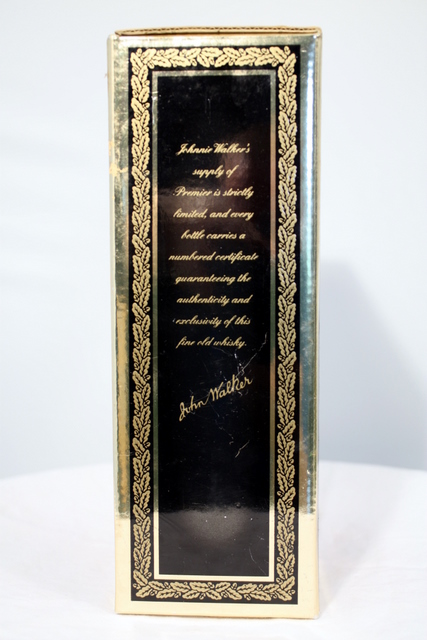 Johnnie Walker's
supply of
Premier is strictly
limited, and every
bottle carries a
numbered certificate
guaranteeing the
authenticity and
exclusivity of this
fine old whisky.
John Walker